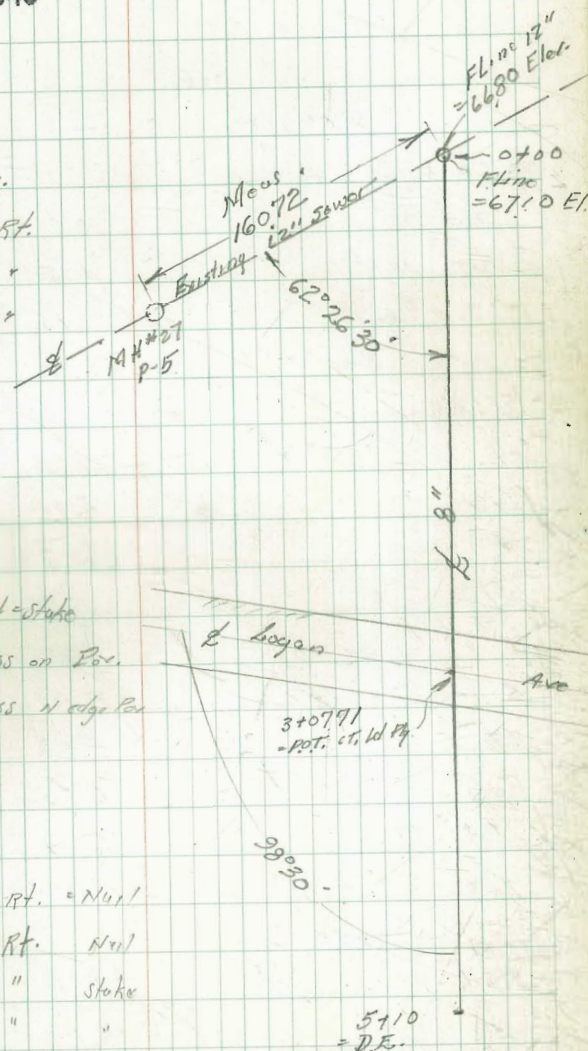 FLine 12"
=66.80 Elev.
0+00
FLine
=67.10 El.
Rt.
"
"
Meas.
160.72
Existing 12" Sewer
62°26'30"
MH#27
P-5
℄
℄ 8"
=stake
on Pav.
N edge Pav
℄ Logan
Ave
3+07.71
=P.O.T. CT. Ld Pg.
98°30'
Rt. = Nail
Rt. Nail
" stake
" "
5+10
=D.E.